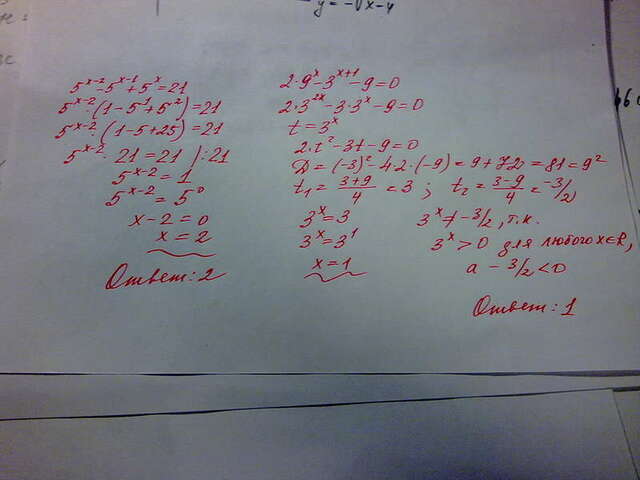 y = -√x-4
5^(x-2) - 5^(x-1) + 5^x = 21
5^(x-2) · (1 - 5^1 + 5^2) = 21
5^(x-2) · (1 - 5 + 25) = 21
5^(x-2) · 21 = 21 | : 21
5^(x-2) = 1
5^(x-2) = 5^0
x - 2 = 0
x = 2
Ответ: 2
2 · 9^x - 3^(x+1) - 9 = 0
2 · 3^(2x) - 3 · 3^x - 9 = 0
t = 3^x
2 · t^2 - 3t - 9 = 0
D = (-3)^2 - 4 · 2 · (-9) = 9 + 72 = 81 = 9^2
t₁ = (3+9)/4 = 3 ; t₂ = (3-9)/4 = -3/2
3^x = 3
3^x = 3^1
x = 1
3^x ≠ -3/2, т.к.
3^x > 0 для любого x∈R,
а - 3/2 < 0
Ответ: 1